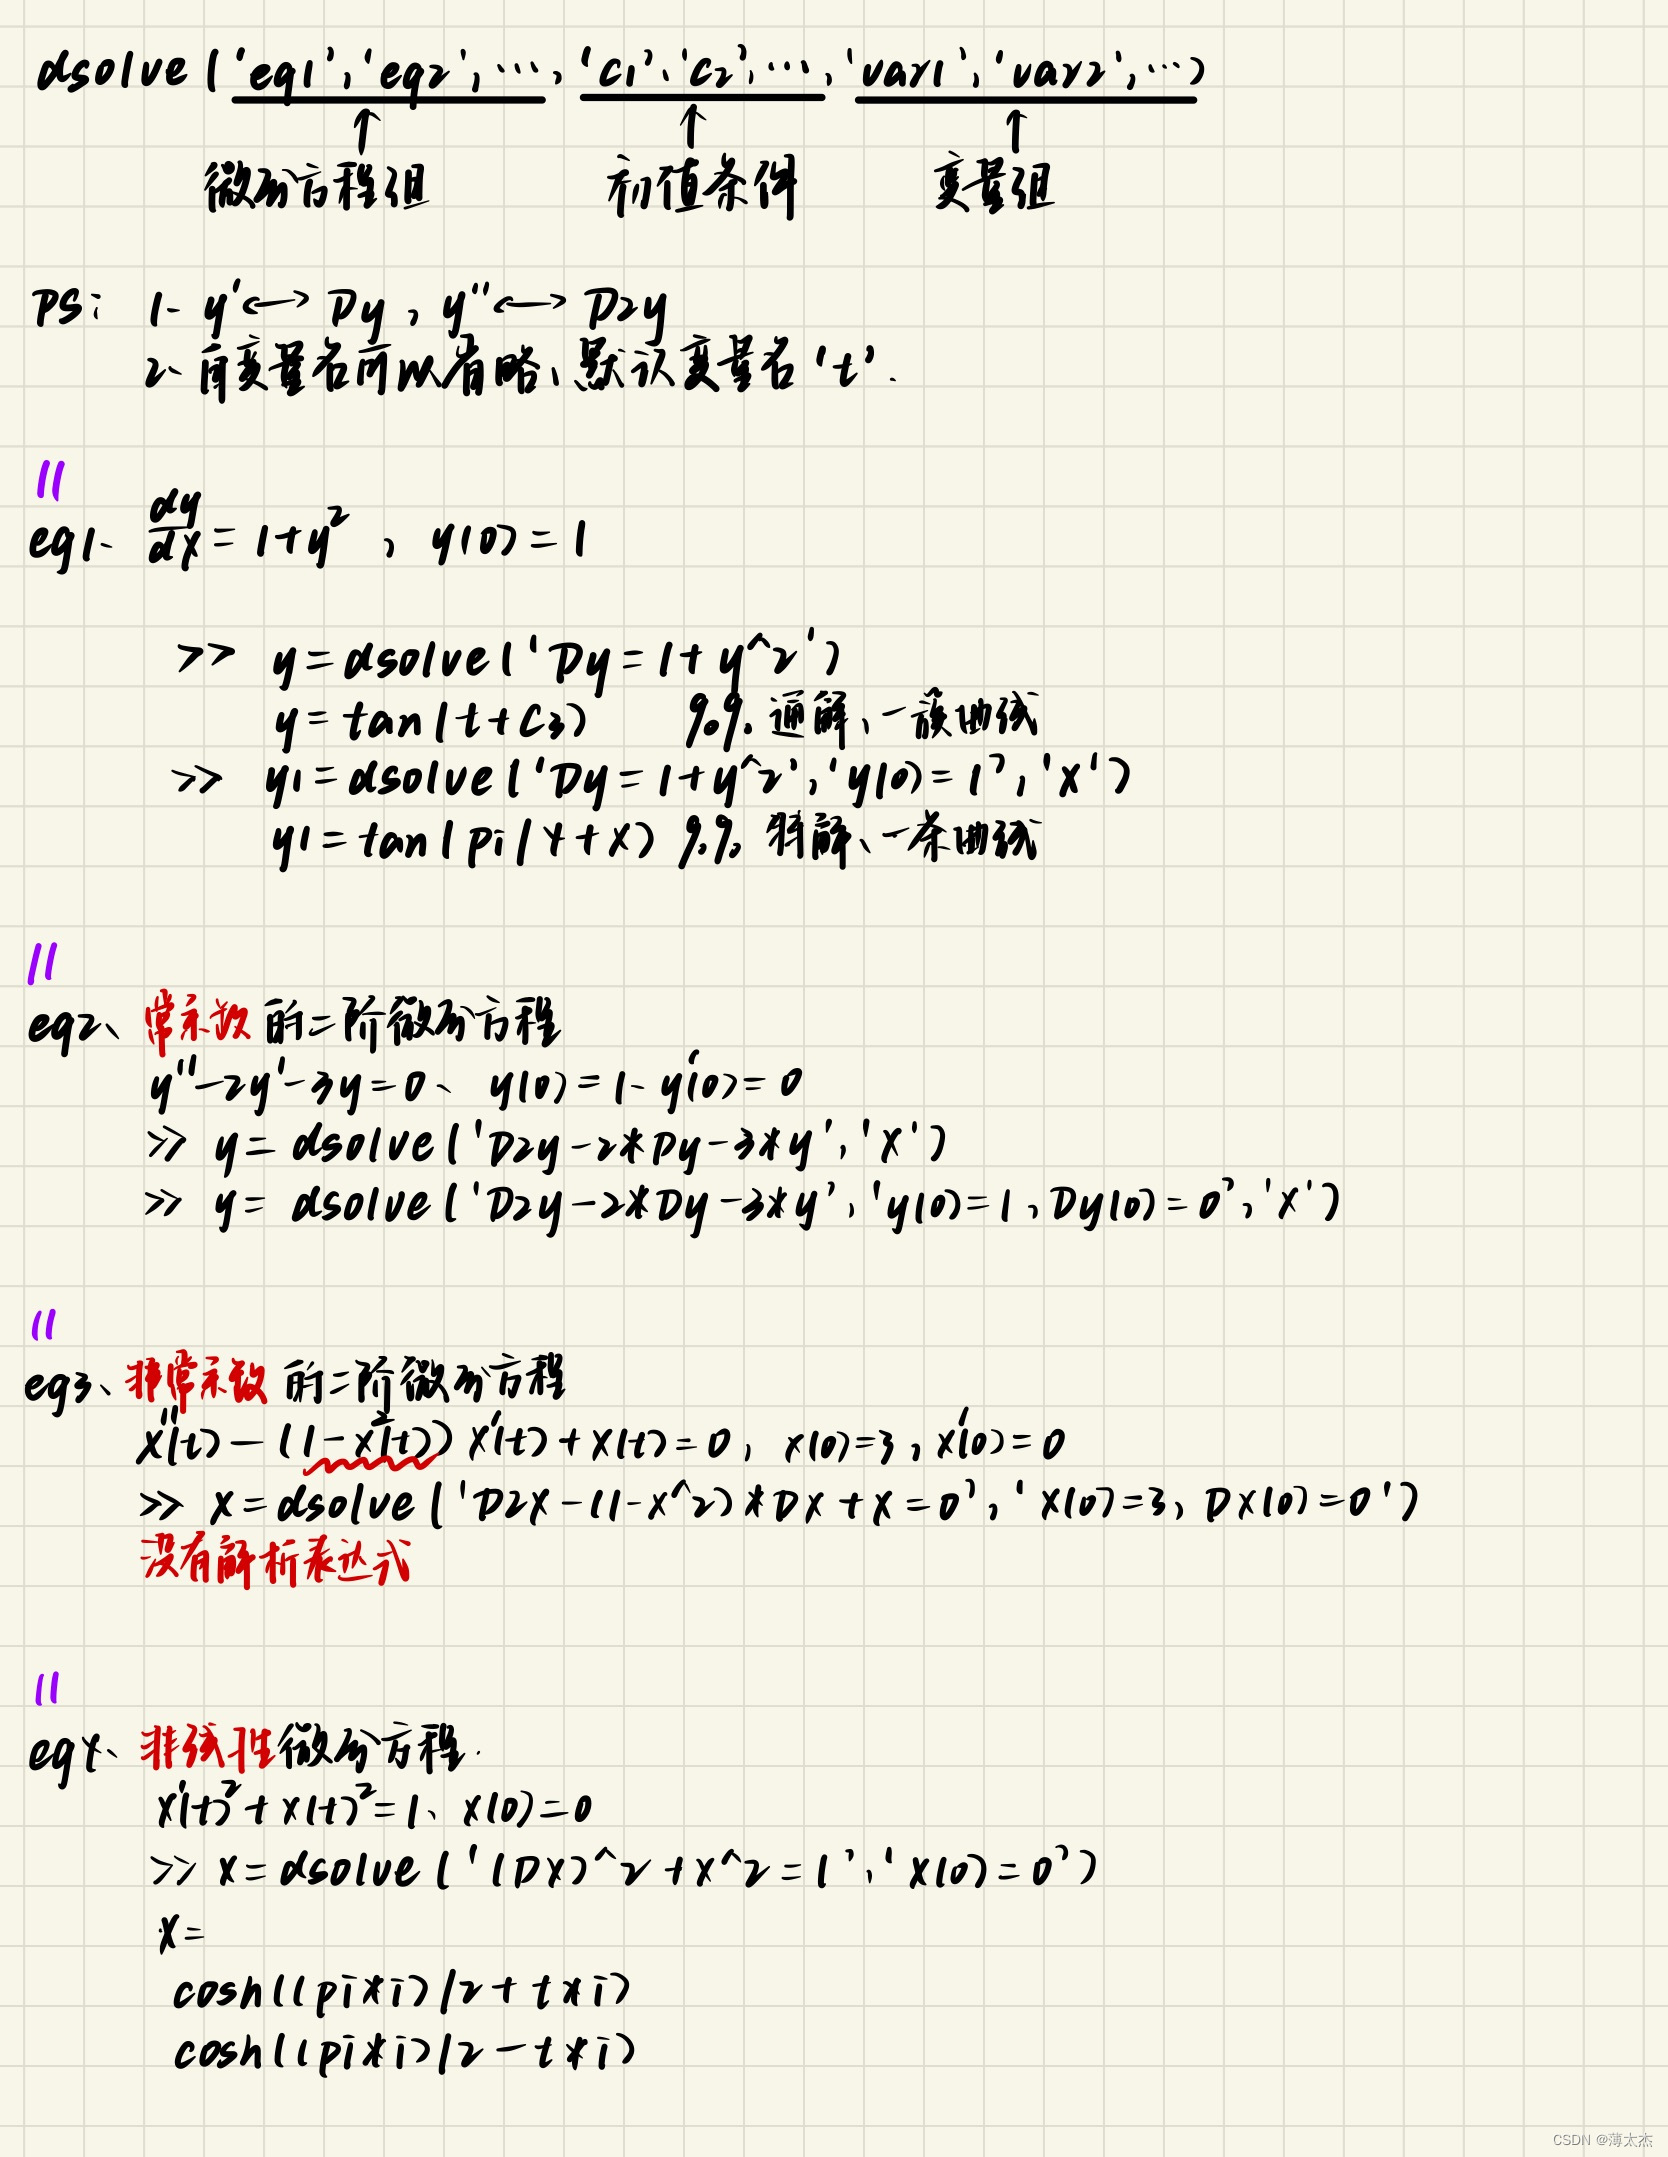 dsolve('eq1','eq2',…,'c1','c2',…,'var1','var2',…)
↑ ↑ ↑
微分方程组 初值条件 变量组
PS: 1. y'←→Dy, y''←→D2y
2、自变量名可以省略、默认变量名't'.
eg1、dy/dx=1+y², y(0)=1
>> y=dsolve('Dy=1+y^2')
y=tan(t+C3) %% 通解、一簇曲线
>> y1=dsolve('Dy=1+y^2','y(0)=1','x')
y1=tan(pi/4+x) %% 特解、一条曲线
eg2、常系数的二阶微分方程
y''-2y'-3y=0、y(0)=1、y'(0)=0
>> y=dsolve('D2y-2*Dy-3*y','x')
>> y=dsolve('D2y-2*Dy-3*y','y(0)=1,Dy(0)=0','x')
eg3、非常系数的二阶微分方程
x''(t)-(1-x²(t))x'(t)+x(t)=0, x(0)=3, x'(0)=0
>> x=dsolve('D2x-(1-x^2)*Dx+x=0','x(0)=3,Dx(0)=0')
没有解析表达式
eg4、非线性微分方程.
x'(t)²+x(t)²=1、x(0)=0
>> x=dsolve('(Dx)^2+x^2=1','x(0)=0')
x=
cosh((pi*i)/2+t*i)
cosh((pi*i)/2-t*i)
CSDN @薄太杰